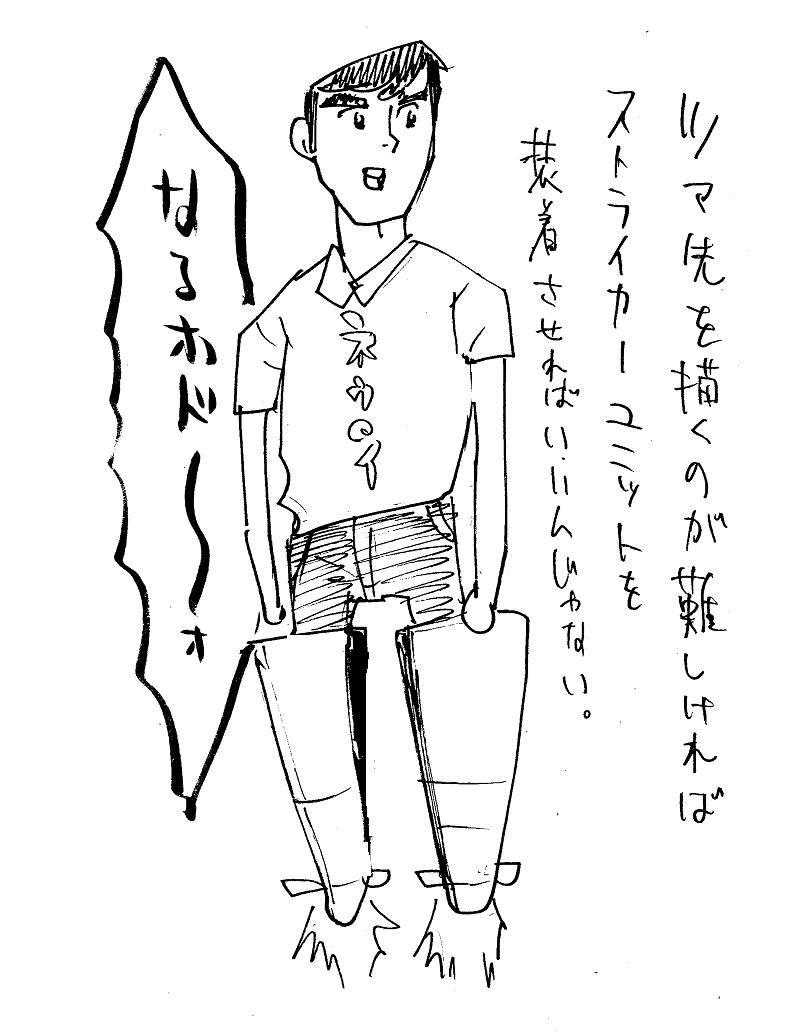 ツマ先を描くのが難しければ
ストライカーユニットを
装着させればいいんじゃない。
ネウロイ
なるホド〜ォ